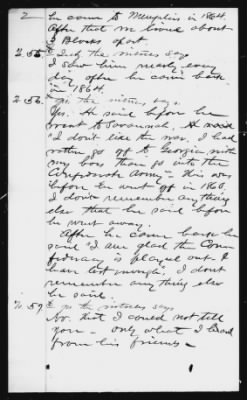 2 he came to Memphis in 1864.
After that we lived about
3 Blocks apart.
2.55. To 2nd the witness says
I saw him nearly every
day after he came back
in 1864.
2.56. To 56 the witness says.
Yes. He said before he
went to Savannah, He said
I don't like the war, I had
rather go off to Georgia with
my boss than go into the
Confederate Army - this was
before he went off in 1860.
I don't remember anything
else that he said before
he went away.
After he came back he
said "I am glad the Con-
federacy is played out. I
have lost enough". I dont
remember any thing else
he said.
2.59. To 59 the witness says
No. that I could not tell
you - only what I heard
from his friends -